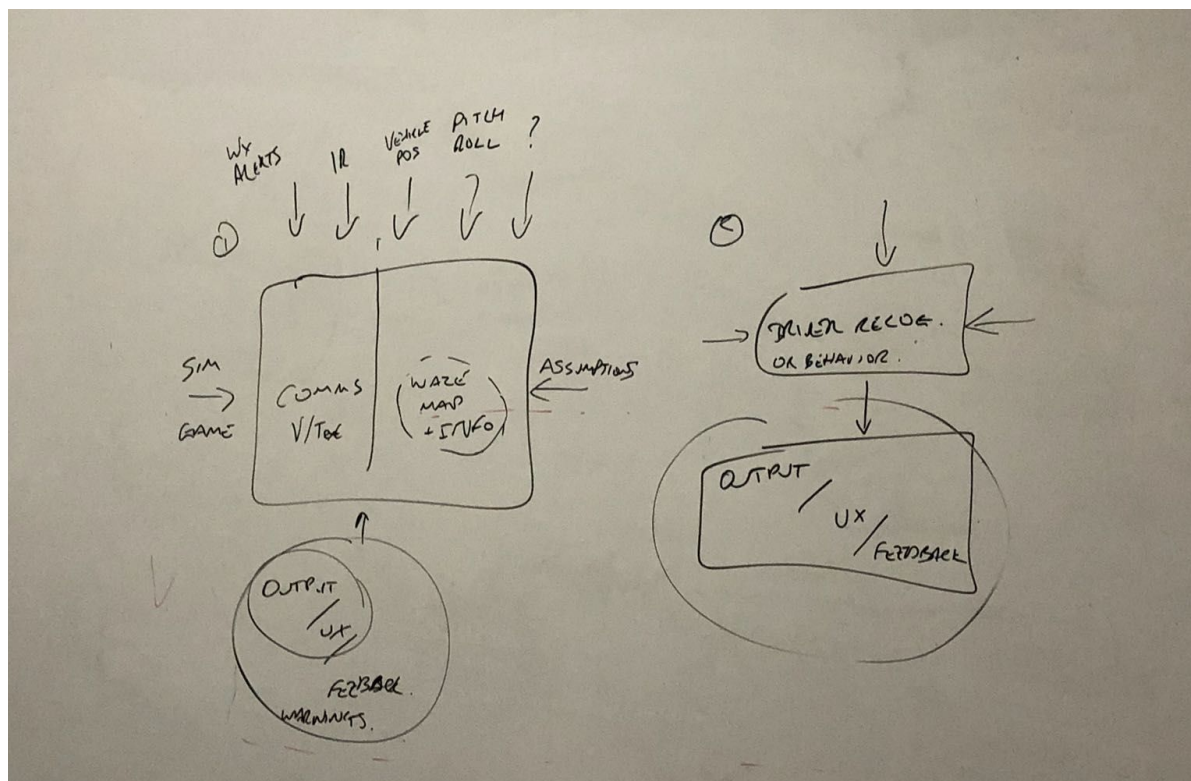 WX
ALERTS
IR
VEHICLE
POS
PITCH
ROLL
?
①
SIM
GAME
COMMS
V/Text
WAZE
MAP
+ INFO
ASSUMPTIONS
OUTPUT
/ UX
/ FEEDBACK.
WARNINGS.
②
DRIVER RECOG.
OR BEHAVIOR.
OUTPUT
/ UX /
FEEDBACK